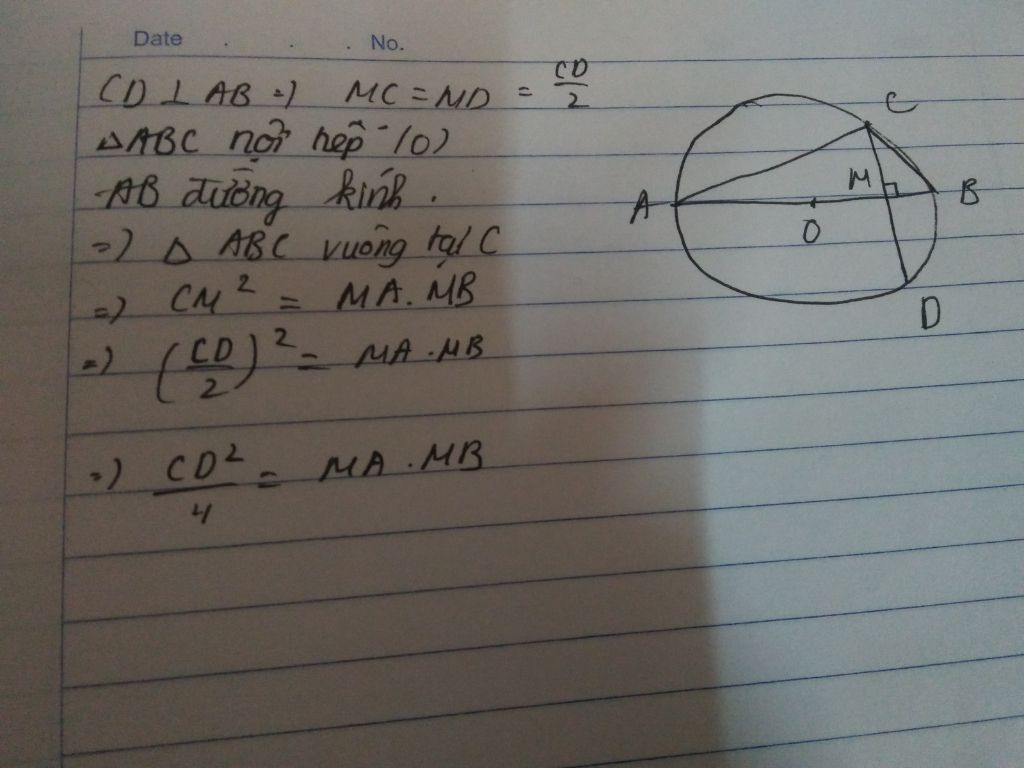 Date . . . No.
CD ⊥ AB => MC = MD = CD/2
∆ABC nội tiếp (O)
AB đường kính.
=> ∆ ABC vuông tại C
=> CM² = MA.MB
=> (CD/2)² = MA.MB
=> CD²/4 = MA.MB
C
M
A
B
O
D